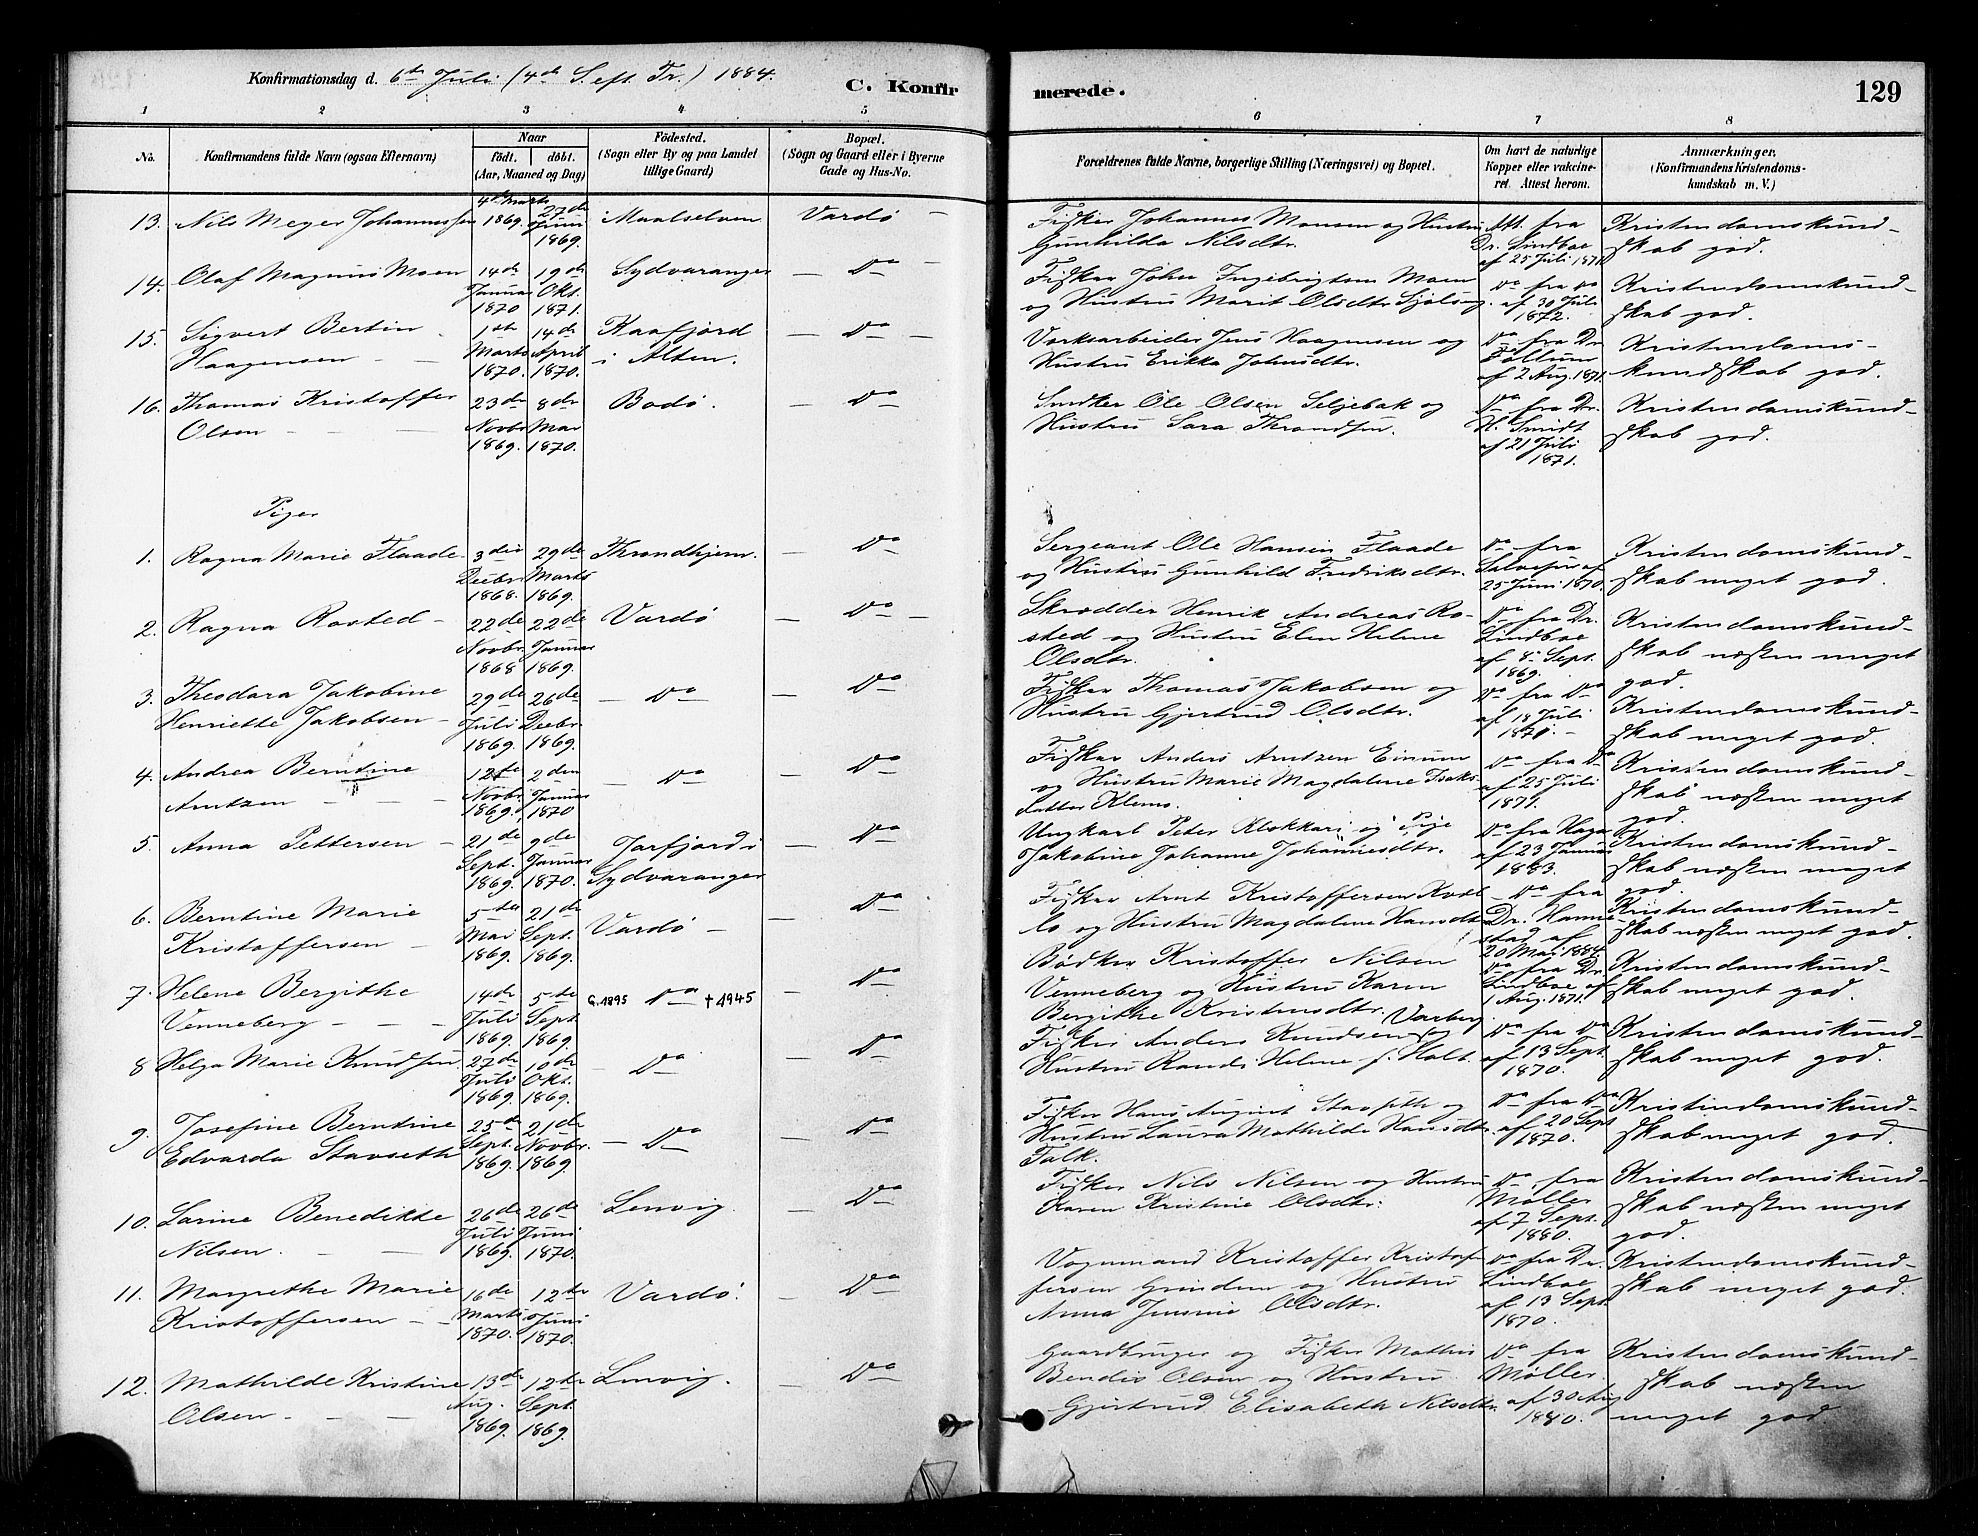 Konfirmationsdag d. 6te Juli (4de S. eft. Tr.) 1884.
C. Konfir
merede.
129
1 2 3 4 5 6 7 8
No.
Konfirmandens fulde Navn (ogsaa Efternavn)
Naar
født. døbt.
(Aar, Maaned og Dag)
Fødested.
(Sogn eller By og paa Landet
tillige Gaard)
Bopæl.
(Sogn og Gaard eller i Byerne
Gade og Hus-No.
Forældrenes fulde Navne, borgerlige Stilling (Næringsvei) og Bopæl.
Om havt de naturlige
Kopper eller vakcine-
ret. Attest herom.
Anmærkninger,
(Konfirmandens Kristendoms-
kundskab m. V.)
13. Nils Meyer Johannessen
4de Marts
1869.
27de
Juni
1869.
Maalselven
Vardø
Fisker Johannes Monsen og Hustru
Gunhilda Nilsdtr.
Att. fra
Dr. Lindboe
af 25 Juli 1871
Kristendomskund-
skab god.
14. Olaf Magnus Moen
14de
Januar
1870
19de
Okt.
1871.
Sydvaranger
Do
Fisker Johan Ingebrigtsen Moen
og Hustru Marit Olsdtr.
Do fra Do
af 30 Juli
1872.
Kristendomskund-
skab god.
15. Sigvert Bertin
Haagensen
1ste
Marts
1870.
14de
April
1870.
Kaafjord
i Alten.
Do
Værksarbeider Jens Haagensen og
Hustru Erikka Johnsdtr.
Do fra Dr.
af 2 Aug. 1871.
Kristendoms-
kundskab god.
16. Thomas Kristoffer
Olsen
23de
Novbr
1869.
8de
Mai
1870.
Bodø.
Do
Snedker Ole Olsen Seljebak og
Hustru Sara Thrandsen.
Do fra Dr.
H. Smidt
af 21 Juli
1871.
Kristendomskund-
skab god.
Piger
1. Ragna Marie Flaade
3die
Decbr
1868.
29de
Marts
1869.
Throndhjem.
Do
Sergeant Ole Hansen Flaade
og Hustru Gunhild Fredriksdtr.
Do fra
af
25 Juni 1870.
Kristendomskund-
skab meget god.
2. Ragna Rosted
22de
Novbr.
1868
22de
Januar
1869.
Vardø
Do
Skrædder Henrik Andreas Ro-
sted og Hustru Elen Helene
Olsdtr.
Do fra Dr.
Lindboe
af 8 Sept.
1869.
Kristendomskund-
skab næsten meget
god.
3. Theodora Jakobine
Henriette Jakobsen
29de
Juli
1869.
26de
Decbr
1869.
Do
Do
Fisker Thomas Jakobsen og
Hustru Gjertrud Olsdtr.
Do fra Do
af 18 Juli
1871.
Kristendomskund-
skab meget god.
4. Andrea Berntine
Arntzen
12te
Novbr.
1869.
2den
Januar
1870
Do
Do
Fisker Anders Arntzen Einum
og Hustru Marie Magdalene Isaks-
datter Klemo.
Do fra Do
af 25 Juli
1871.
Kristendomskund-
skab næsten meget
god.
5. Anna Pettersen
21de
Sept.
1869.
9de
Januar
1870.
Jarfjord i
Sydvaranger
Do
Ungkarl Peter Klokkari og Pige
Jakobine Johanne Johannesdtr.
Do fra Haga
af 23 Januar
1883.
Kristendomskund-
skab næsten meget
god.
6. Berntine Marie
Kristoffersen
5te
Mai
1869.
21de
Sept.
1869.
Vardø
Do
Fisker Arnt Kristoffersen
og Hustru Magdalene Hansdtr
Do fra
Dr. Hanne-
stad af
20 Mai 1884.
Kristendomskund-
skab næsten meget god.
7. Helene Bergithe
Venneberg
14de
Juli
1869.
5te
Sept
1869.
G. 1895 Do † 1945
Do
Bødker Kristoffer Nilsen
Venneberg og Hustru Karen
Bergithe Kristensdtr. Varberg
Do fra Dr.
Lindboe af
1 Aug. 1871.
Kristendomskund-
skab meget god.
8 Helga Marie Knudsen
27de
Juli
1869.
10de
Okt.
1869.
Do
Do
Fisker Anders Knudsen og
Hustru Randi Helene f. Holt.
Do fra Do
af 13 Sept.
1870.
Kristendomskund-
skab meget god.
9. Josefine Berntine
Edvarda Stavseth
25de
Sept.
1869.
21de
Novbr.
1869.
Do
Do
Fisker Hans August Stavseth og
Hustru Laura Mathilde Hansdtr.
Falk.
Do fra Do
af 20 Sept
1870.
Kristendomskund-
skab meget god.
10. Larine Benedikte
Nilsen.
26de
Juli
1869.
26de
Juni
1870.
Lenvig.
Do
Fisker Nils Nilsen og Hustru
Karen Kristine Olsdtr.
Do fra
Møller
af 7 Sept.
1880.
Kristendomskund-
skab næsten meget
god.
11. Margrethe Marie
Kristoffersen
16de
Marts
1870.
12te
Juni
1870.
Vardø.
Do
Vognmand Kristoffer Kristof-
fersen Grinden og Hustru
Anna Jensine Olsdtr.
Do fra Dr.
Lindboe
af 13 Sept.
1870.
Kristendomskund-
skab meget god.
12. Mathilde Kristine
Olsen.
13de
Aug.
1869.
12te
Sept.
1869.
Lenvig.
Do
Gaardbruger og Fisker Mathis
Bendix Olsen og Hustru
Gjertrud Elisabeth Nilsdtr.
Do fra
Møller
af 30 Aug
1880.
Kristendomskund-
skab næsten
meget god